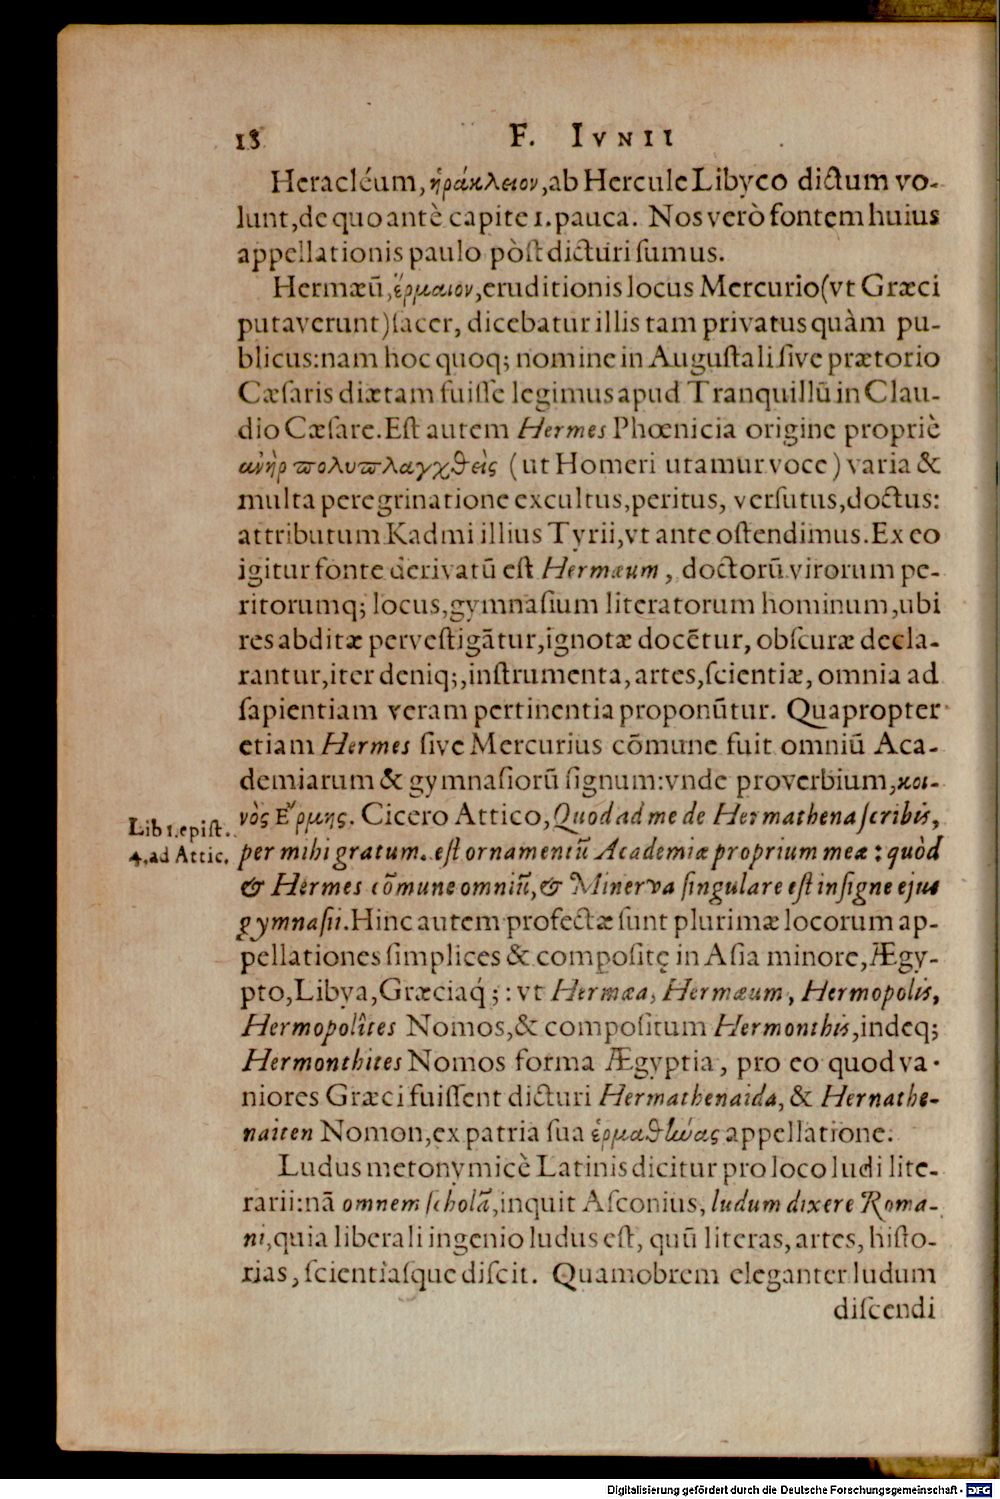 18 F. IVNII
Heracléum, ἡράκλειον, ab Hercule Libyco dictum vo-
lunt, de quo antè capite 1. pauca. Nos verò fontem huius
appellationis paulo pòst dicturi sumus.
Hermæũ, ἕρμαιον, eruditionis locus Mercurio (vt Græci
putaverunt) sacer, dicebatur illis tam privatus quàm pu-
blicus: nam hoc quoq; nomine in Augustali sive prætorio
Cæsaris diætam fuisse legimus apud Tranquillũ in Clau-
dio Cæsare. Est autem Hermes Phœnicia origine propriè
ἀνὴρ πολυπλαγχθεὶς (ut Homeri utamur voce) varia &
multa peregrinatione excultus, peritus, versutus, doctus:
attributum Kadmi illius Tyrii, vt ante ostendimus. Ex eo
igitur fonte derivatũ est Hermæum, doctorũ virorum pe-
ritorumq; locus, gymnasium literatorum hominum, ubi
res abditæ pervestigãtur, ignotæ docẽtur, obscuræ decla-
rantur, iter deniq;, instrumenta, artes, scientiæ, omnia ad
sapientiam veram pertinentia proponũtur. Quapropter
etiam Hermes sive Mercurius cõmune fuit omniũ Aca-
demiarum & gymnasiorũ signum: vnde proverbium, κοι-
νὸς Ἕρμης. Cicero Attico, Quod ad me de Hermathena scribis,
Lib 1. epist.
4, ad Attic.
per mihi gratum. est ornamentũ Academiæ proprium meæ: quòd
& Hermes cõmune omniũ, & Minerva singulare est insigne ejus
gymnasii. Hinc autem profectæ sunt plurimæ locorum ap-
pellationes simplices & compositę in Asia minore, Ægy-
pto, Libya, Græciaq́;: vt Hermæa, Hermæum, Hermopolis,
Hermopolîtes Nomos, & compositum Hermonthis, indeq;
Hermonthites Nomos forma Ægyptia, pro eo quod va-
niores Græci fuissent dicturi Hermathenaida, & Hernathe-
naiten Nomon, ex patria sua ἑρμαθηνᾶς appellatione.
Ludus metonymicè Latinis dicitur pro loco ludi lite-
rarii: nã omnem scholã, inquit Asconius, ludum dixere Roma-
ni, quia liberali ingenio ludus est, quũ literas, artes, histo-
rias, scientiasque discit. Quamobrem eleganter ludum
discendi
Digitalisierung gefördert durch die Deutsche Forschungsgemeinschaft - DFG